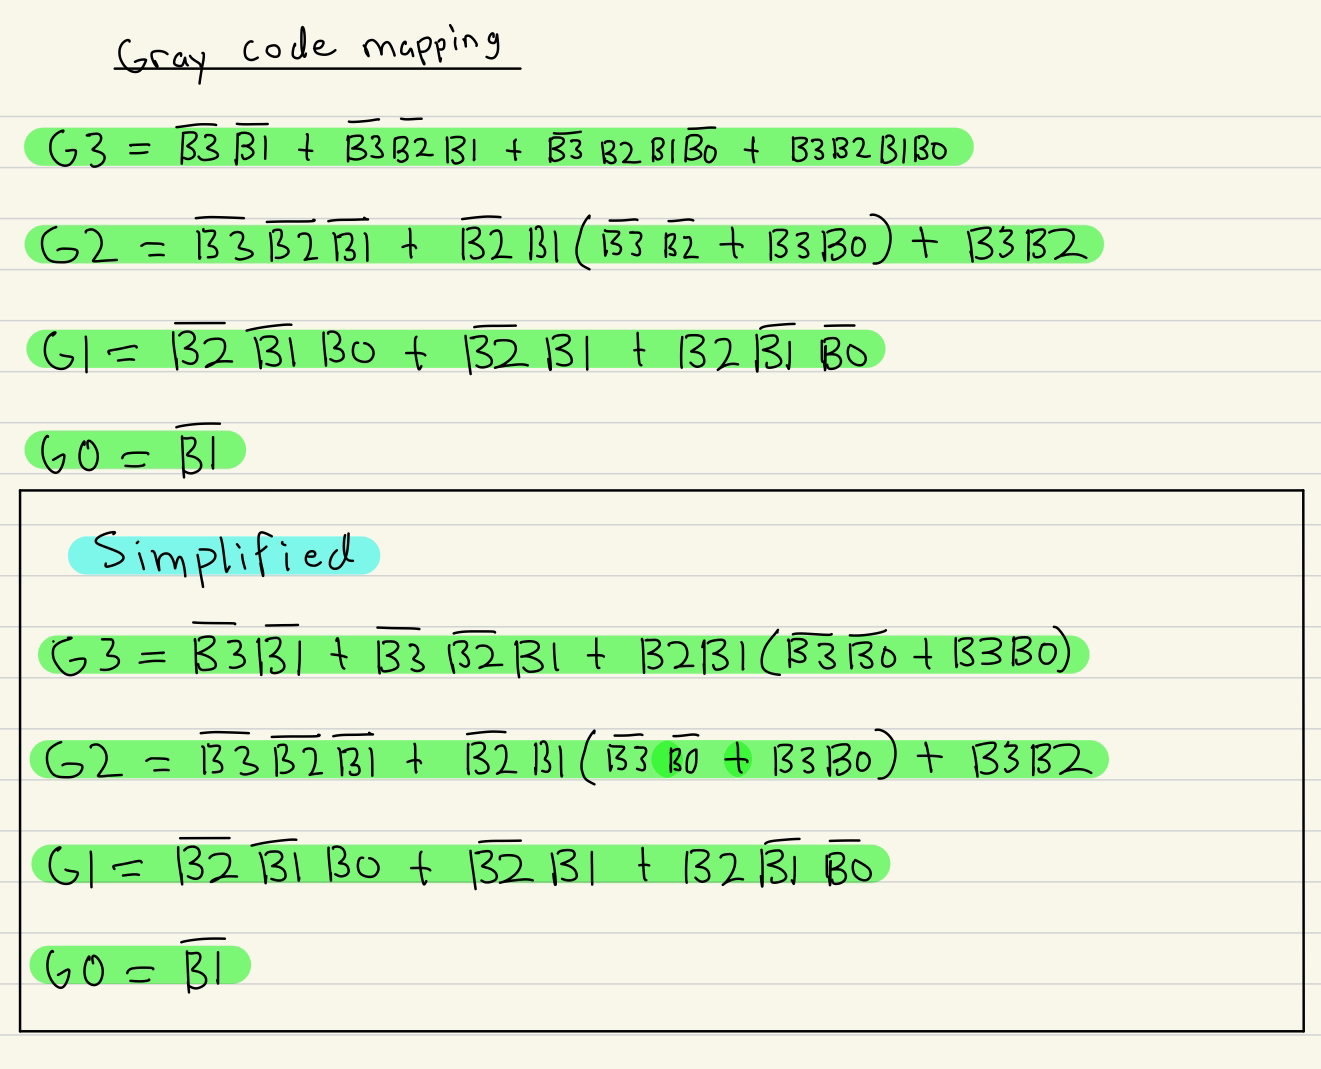 Gray code mapping
G3 = B̅3̅ B̅1̅ + B̅3̅ B̅2̅ B1 + B̅3̅ B2 B1 B̅0̅ + B3 B2 B1 B0
G2 = B̅3̅ B̅2̅ B̅1̅ + B̅2̅ B1 (B̅3̅ B̅2̅ + B3 B0) + B3 B2
G1 = B̅2̅ B̅1̅ B0 + B̅2̅ B1 + B2 B̅1̅ B̅0̅
G0 = B̅1̅
Simplified
G3 = B̅3̅ B̅1̅ + B̅3̅ B̅2̅ B1 + B2 B1 (B̅3̅ B̅0̅ + B3 B0)
G2 = B̅3̅ B̅2̅ B̅1̅ + B̅2̅ B1 (B̅3̅ B̅0̅ + B3 B0) + B3 B2
G1 = B̅2̅ B̅1̅ B0 + B̅2̅ B1 + B2 B̅1̅ B̅0̅
G0 = B̅1̅